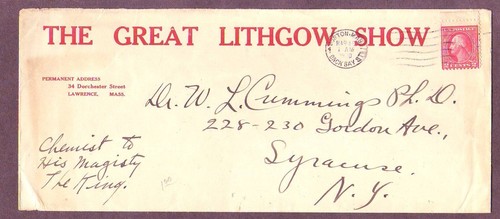 THE GREAT LITHGOW SHOW
PERMANENT ADDRESS
34 Dorchester Street
LAWRENCE, MASS.
Dr. W. L. Cummings Ph. D.
228-230 Gordon Ave.,
Syracuse.
N. Y.
Chemist to
His Magisty
The King.